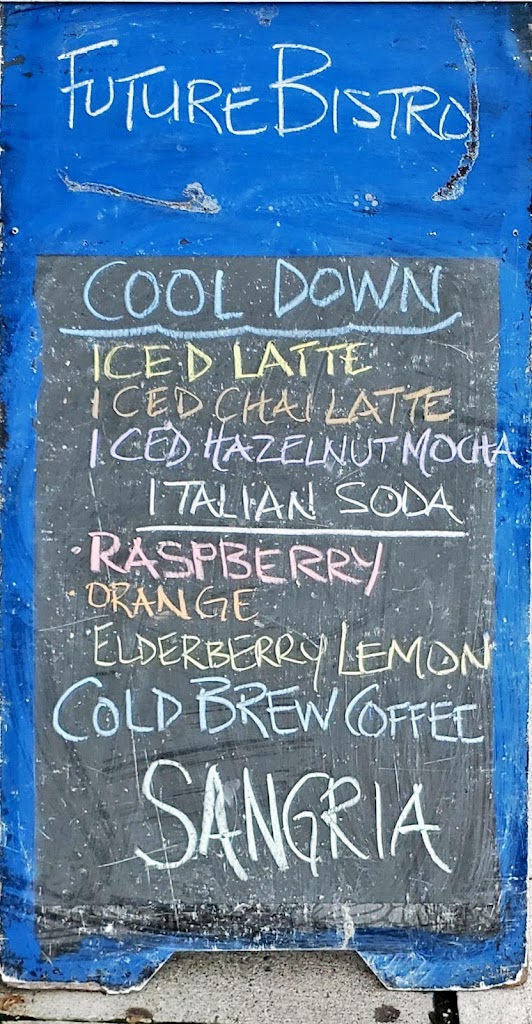 FUTURE BISTRO
COOL DOWN
ICED LATTE
ICED CHAI LATTE
ICED HAZELNUT MOCHA
ITALIAN SODA
· RASPBERRY
· ORANGE
ELDERBERRY LEMON
COLD BREW COFFEE
SANGRIA